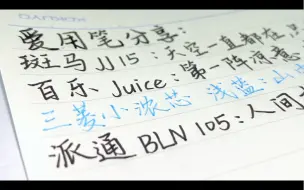 爱用笔分享:
斑马 JJ15:天空一直都在
百乐 Juice:第一阵凉意
三菱小浓芯 浅蓝:山
派通 BLN105:人间